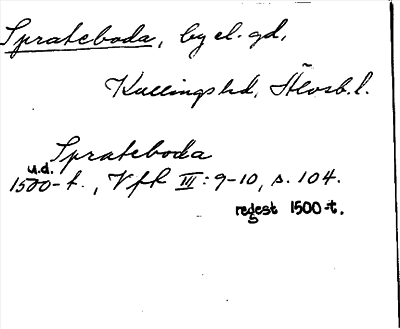 Sprateboda, by el. gd,
Kullingshd, Älvsb. l.
Sprateboda
u.d.
1500-t., Vfk III: 9-10, s. 104.
regest 1500-t.